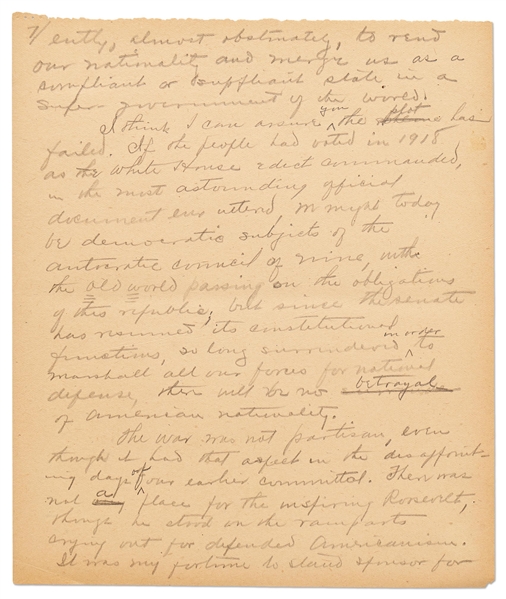 7/ ently, almost obstinately, to rend
our nationality and merge us as a
compliant or suppliant state in a
super government of the world.
I think I can assure you the plot has
failed. If the people had voted in 1918
as the White House edict commanded,
in the most astounding official
document ever uttered, we might today
be democratic subjects of the
autocratic council of nine, with
the old world passing on the obligations
of this republic; but since the senate
has resumed its constitutional
functions, so long surrendered in order to
marshall all our forces for national
defense, there will be no betrayal
of American nationality.
The war was not partisan, even
though it had that aspect in the disappoint-
ing days of our earlier committal. There was
not a place for the inspiring Roosevelt,
though he stood on the ramparts
crying out for defended Americanism.
It was my fortune to stand sponsor for